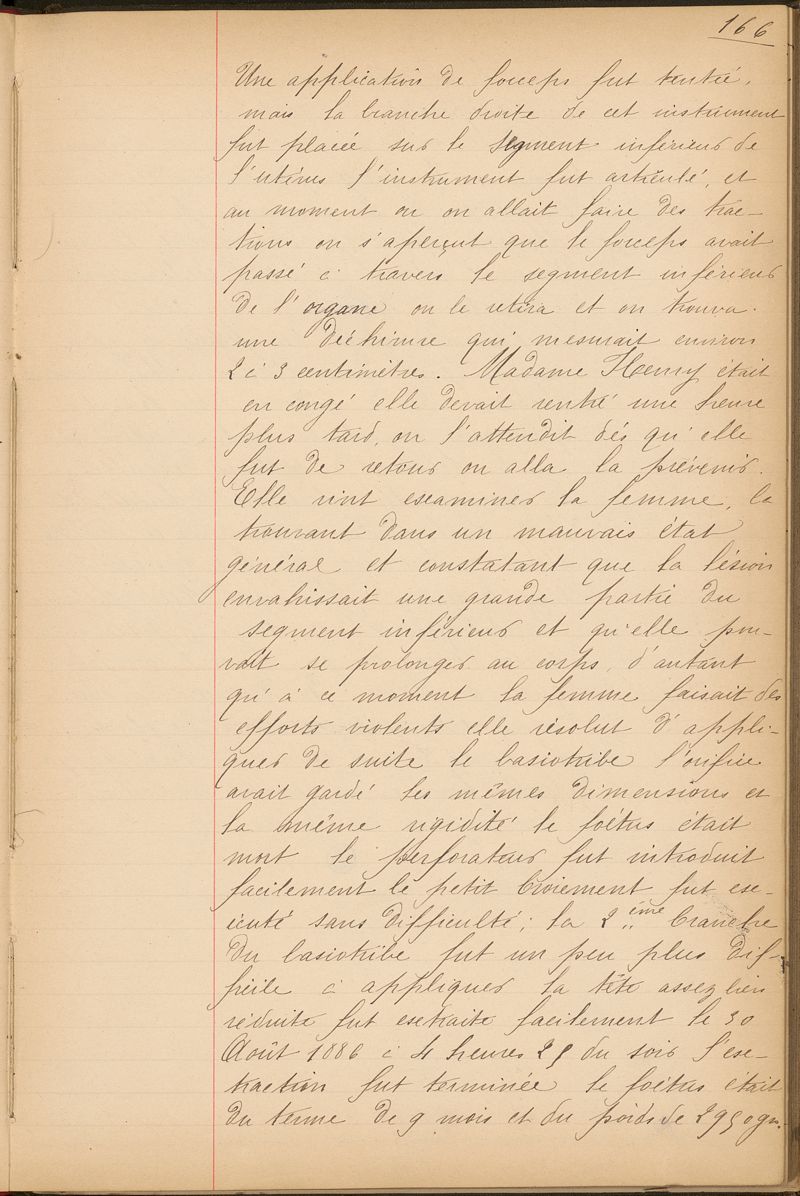 166
Une application de forceps fut tentée,
mais la branche droite de cet instrument
fut placée sur le segment inférieur de
l'utérus l'instrument fut articulé, et
au moment ou on allait faire des trac-
tions on s'aperçut que le forceps avait
passé à travers le segment inférieur
de l'organe on le retira et on trouva
une déchirure qui mesurait environ
2 à 3 centimètres. Madame Henry était
en congé elle devait rentré une heure
plus tard, on l'attendit dés qu'elle
fut de retour on alla la prévenir.
Elle vint examiner la femme, la
trouvant dans un mauvais état
général et constatant que la lésion
envahissait une grande partie du
segment inférieur et qu'elle pou-
vait se prolonger au corps, d'autant
qu'à ce moment la femme faisait des
efforts violents elle résolut d'appli-
quer de suite le basiotribe l'orifice
avait gardé les mêmes dimensions et
la même rigidité le foétus était
mort le perforateur fut introduit
facilement le petit broiement fut exé-
cuté sans difficulté; la 2ème branche
du basiotribe fut un peu plus dif-
ficile à appliquer la tête assez bien
réduite fut extraite facilement le 30
Août 1886 à 4 heures 25 du soir l'ex-
traction fut terminée le foétus était
du terme de 9 mois et du poids de 2950 gr.